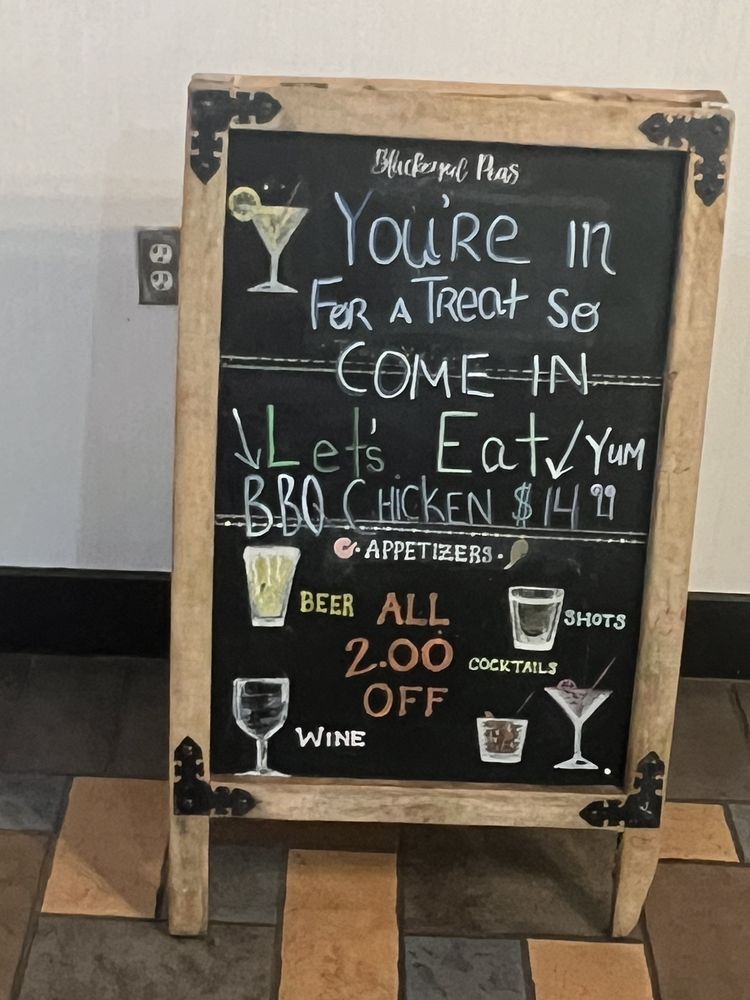 Blackeyed Peas
You're in
For a Treat so
COME IN
Let's Eat Yum
BBQ CHICKEN $14.99
APPETIZERS
BEER ALL SHOTS
2.00 COCKTAILS
OFF
WINE